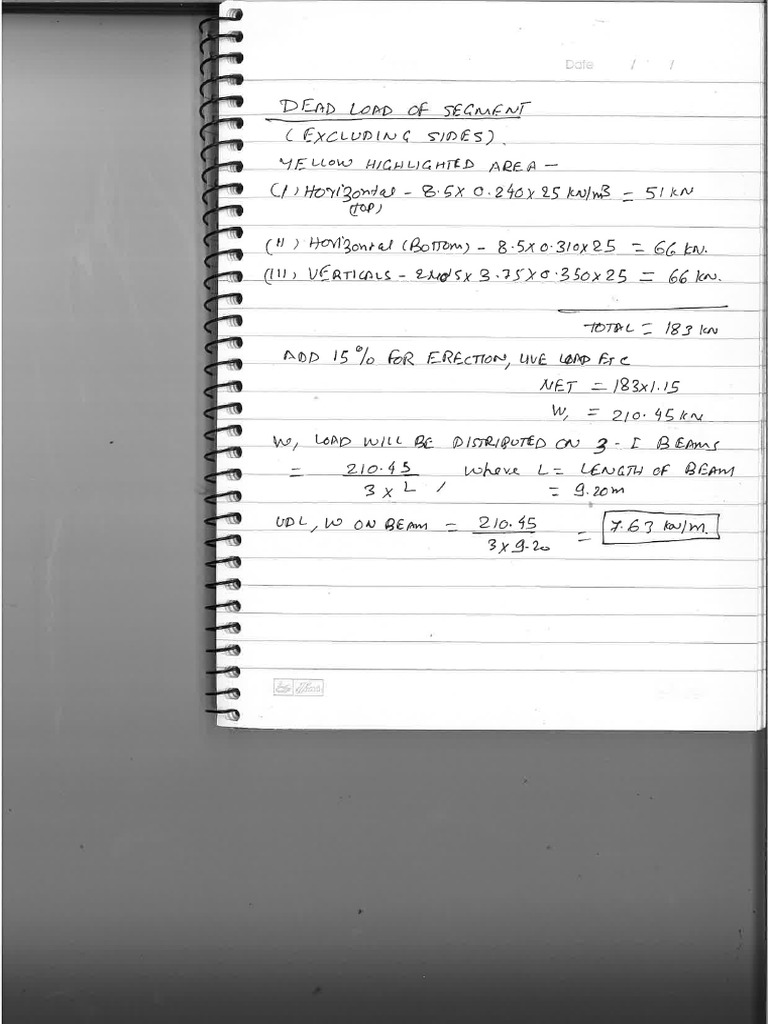 Date / /
DEAD LOAD OF SEGMENT
(EXCLUDING SIDES).
YELLOW HIGHLIGHTED AREA —
(I) Horizontal - 8.5 x 0.240 x 25 kN/m3 = 51 kN
(TOP)
(II) Horizontal (Bottom) - 8.5 x 0.310 x 25 = 66 kN.
(III) VERTICALS - x 3.75 x 0.350 x 25 = 66 kN.
TOTAL = 183 kN
ADD 15% FOR ERECTION, LIVE LOAD Etc
NET = 183 x 1.15
W, = 210.45 kN
W, LOAD WILL BE DISTRIBUTED ON 3 - I BEAMS
= 210.45 / 3 x L , where L = LENGTH OF BEAM
= 9.20m
UDL, W ON BEAM = 210.45 / 3 x 9.20 = 7.63 kN/m.